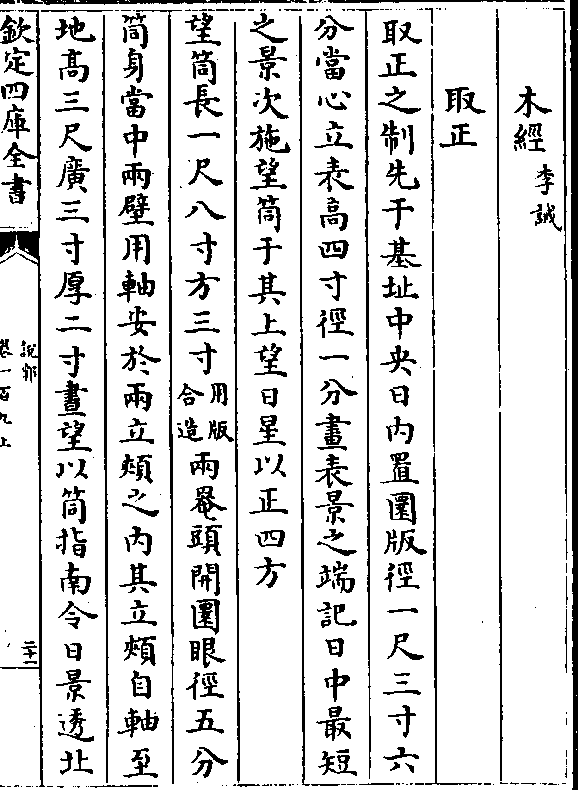 木經李誡
取正
取正之制先于基址中央日内置圜版徑一尺三寸六
分當心立表髙四寸徑一分畫表景之端記日中最短
之景次施望筒于其上望日星以正四方
望筒長一尺八寸方三寸用版合造兩罨頭開圜眼徑五分
筒身當中兩壁用軸安於兩立頰之内其立頰自軸至
地髙三尺廣三寸厚二寸晝望以筒指南令日景透北
欽定四庫全書
説郛
卷一百九上
二十一